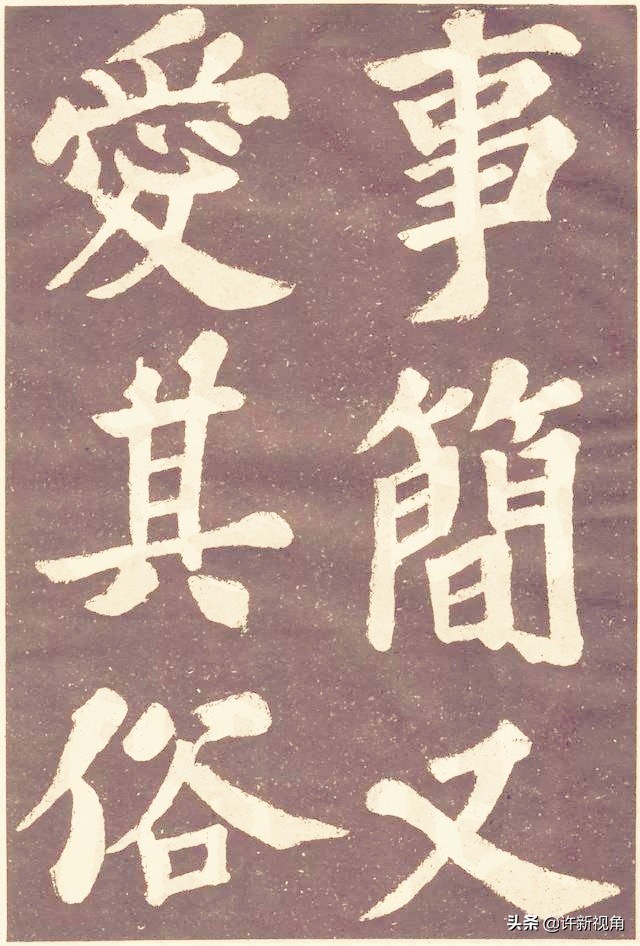 事簡又
愛其俗
头条 @许新视角